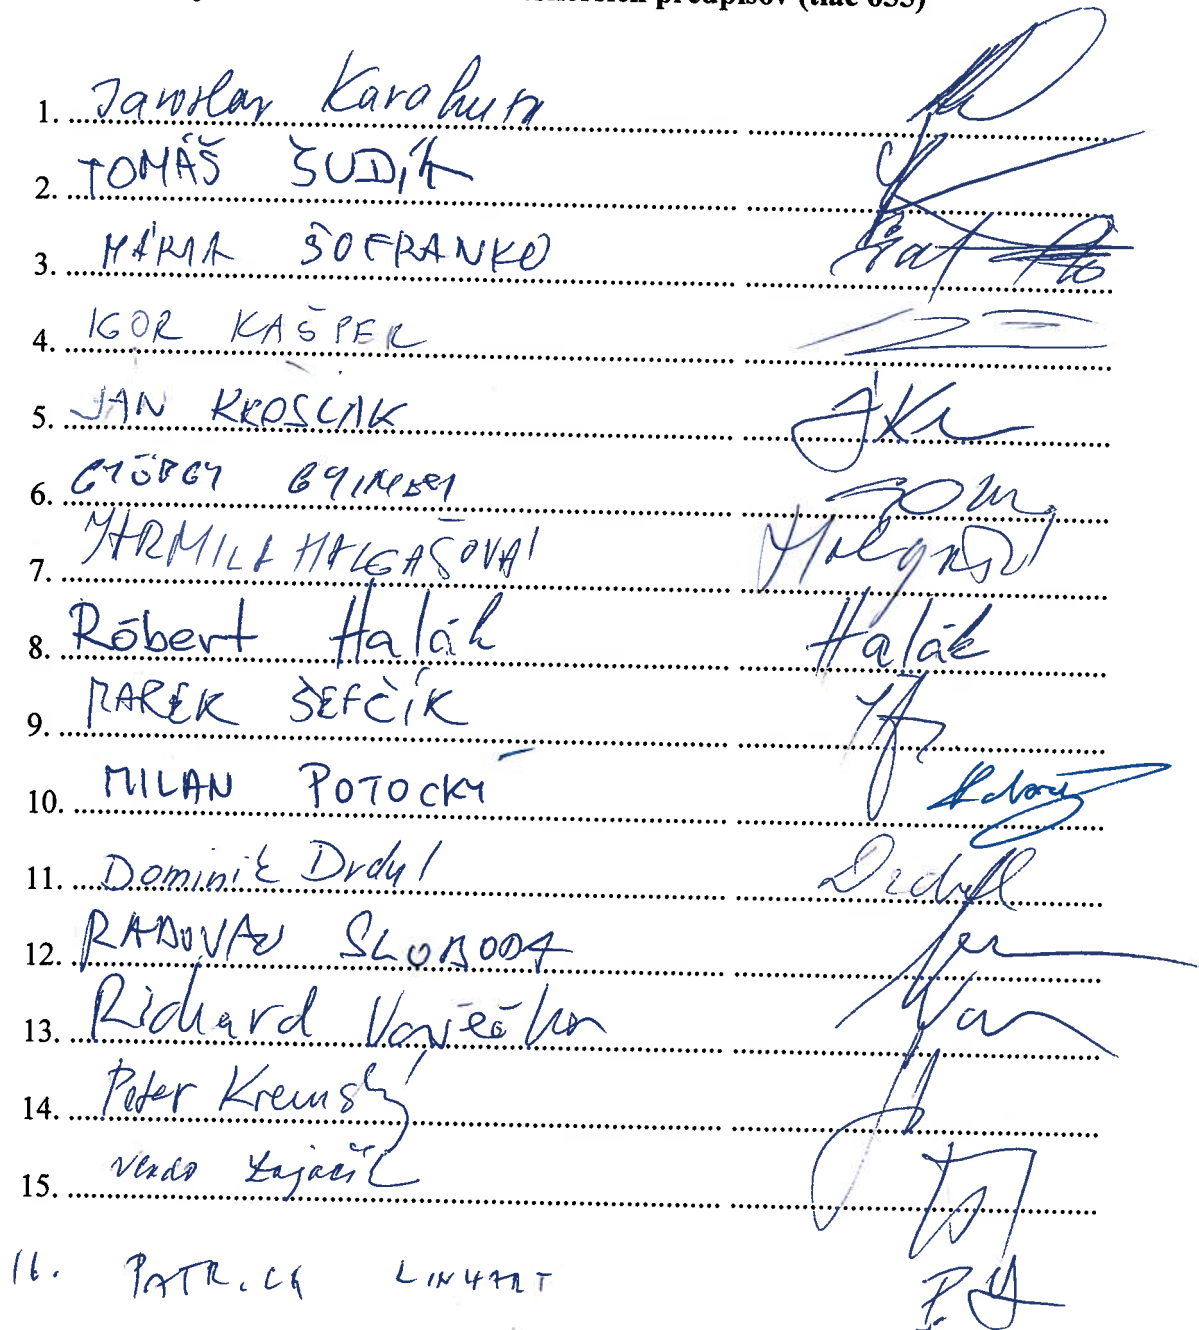 predpisov (tlač 653)
1. Jaroslav Karahuta
2. TOMÁŠ ŠUDÍK
3. MÁRIA ŠOFRANKO
4. IGOR KAŠPER
5. JÁN KROŠLÁK
6. GYÖRGY GYIMESI
7. JARMILA HALGAŠOVÁ
8. Róbert Halák Halák
9. MAREK ŠEFČÍK
10. MILAN POTOCKÝ
11. Dominik Drdul Drdul
12. RADOVAN SLOBODA
13. Richard
14. Peter Kremský
15.
16. PATRICK LINHART